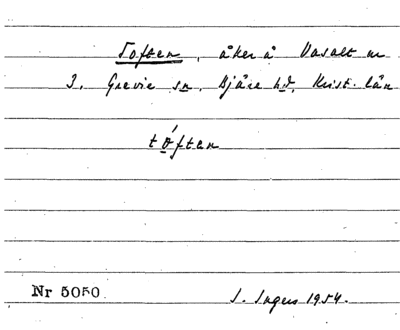 Toften, åker å Vasalt nr
3. Grevie sn. Bjäre hd, Krist. län
tóften
Nr 5050 I. Ingers 1954.